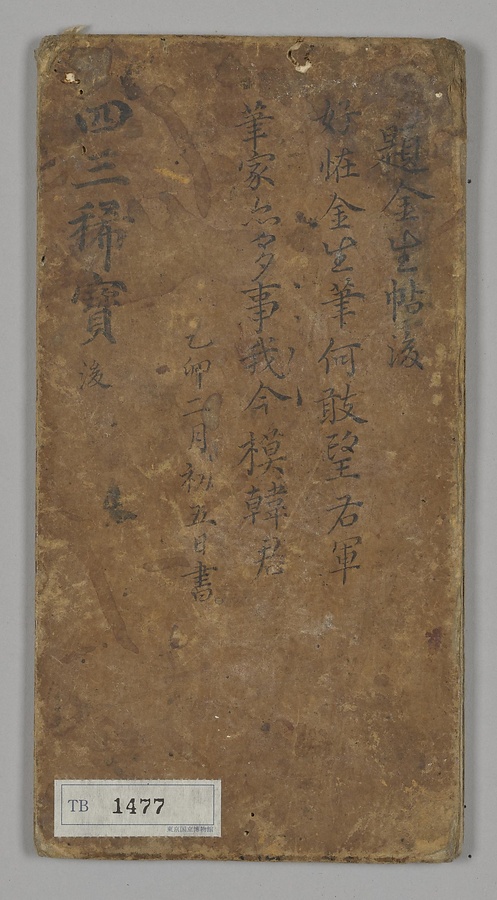 題金生帖後
好恠金生筆何敢望右軍
筆家亦多事我今模韓君
乙卯二月初五日書
四三稀寶 後
TB 1477
東京国立博物館